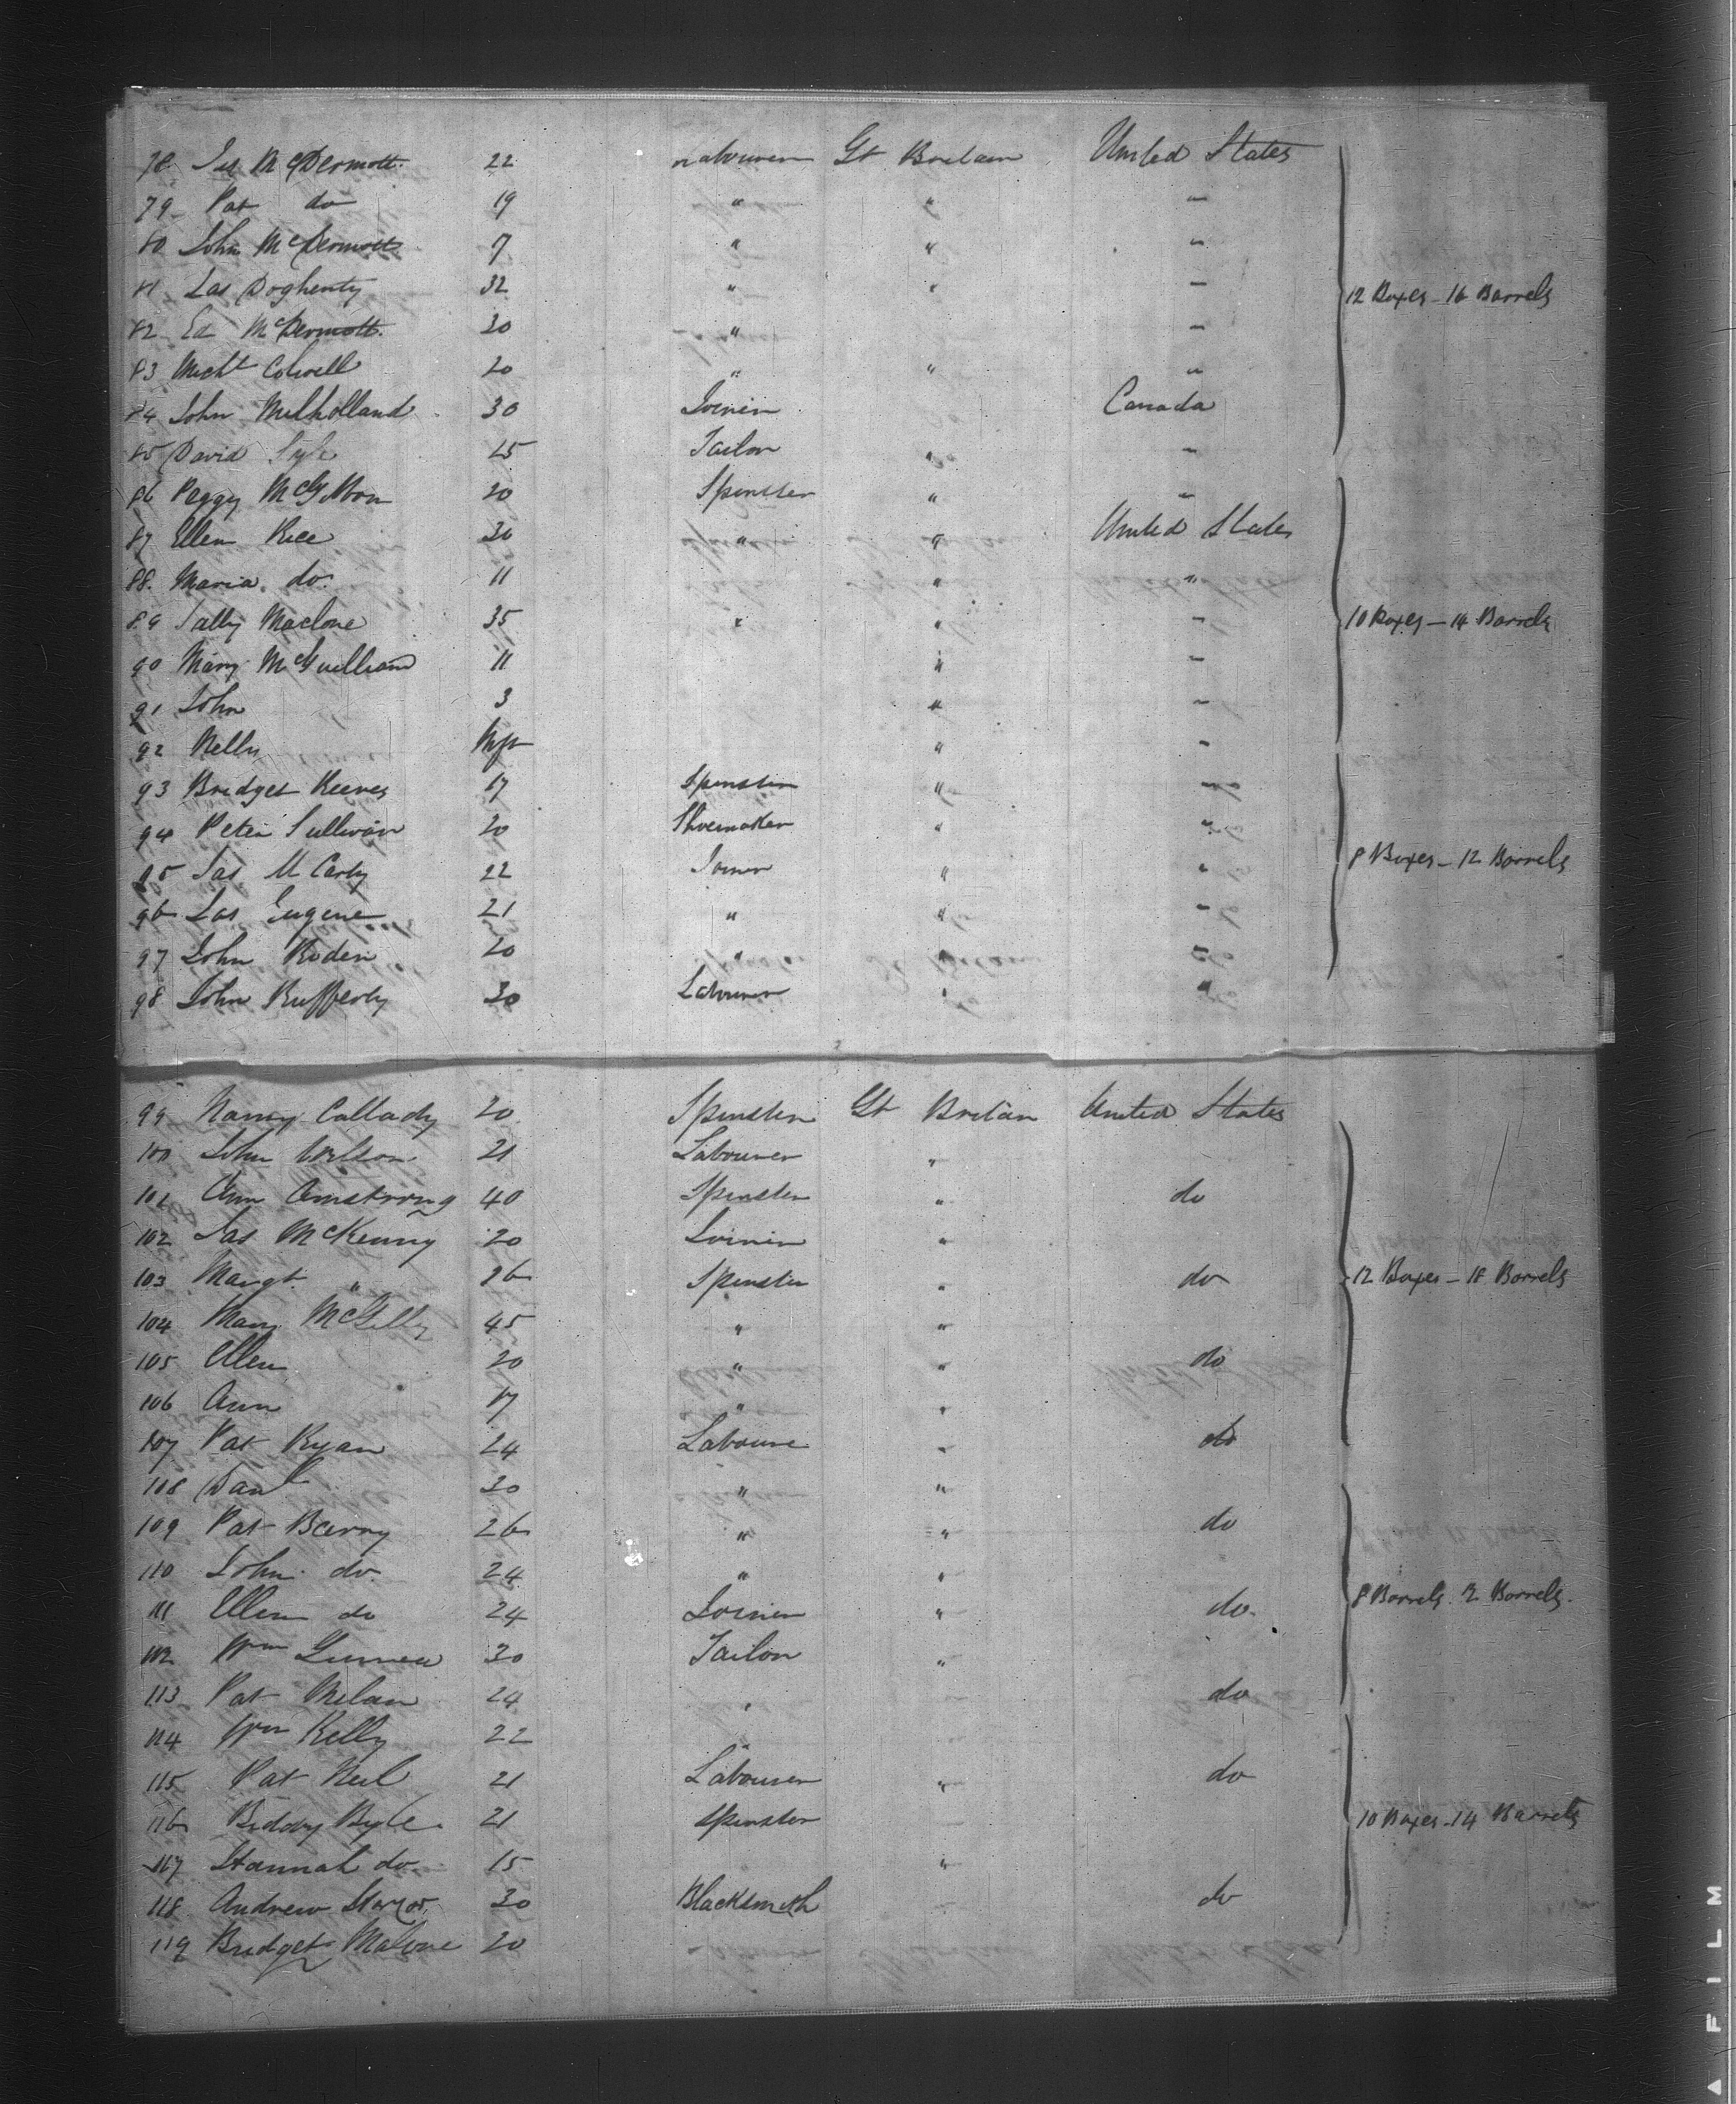 78 Jas McDermott 22 Labourer Gt Britain United States
79 Pat do 19 " " "
80 John McDermott 7 " " "
81 Jas Dogherty 32 " " " 12 Boxes - 16 Barrels
82 Ed McDermott. 30 " "
83 Michl Colwell 20 " " "
84 John Mulholland 30 Joiner Canada
85 David Lyle 25 Tailor " "
86 Peggy McGibbon 20 Spinster " "
87 Ellen Rice 30 " " United States
88. Maria do. 11 " "
89 Sally Maclone 35 " " " 10 Boxes - 14 Barrels
90 Mary McGuilliam 11 " "
91 John 3 " "
92 Nelly Inft " "
93 Bridget Reeves 17 Spinster " "
94 Peter Sullivan 20 Shoemaker " "
95 Jas McCarty 22 Joiner " " 8 Boxes - 12 Barrels
96 Jas Eugene 21 " " "
97 John Roden 20 " " "
98 John Rufferty 30 Labourer " "
99 Nancy Callady 20 Spinster Gt Britain United States
100 John Wilson 21 Labourer "
101 Ann Armstrong 40 Spinster " do
102 Jas McKenny 20 Joiner "
103 Margt " 26 Spinster " do 12 Boxes - 18 Barrels
104 Mary McGilly 45 " "
105 Ellen 20 " " do
106 Ann 17 " "
107 Pat Ryan 24 Laboure " do
108 Danl 30 " "
109 Pat Barry 26 " " do
110 John do. 24 " "
111 Ellen do 24 Joiner " do. 8 Barrels. 12 Barrels.
112 Wm 30 Tailor "
113 Pat Milan 24 " do
114 Wm Kelly 22 "
115 Pat Neil 21 Labourer " do
116 Biddy Byle 21 Spinster 10 Boxes - 14 Barrels
117 Hannah do 15 "
118 Andrew 30 Blacksmith do
119 Bridget Malone 20
FILM